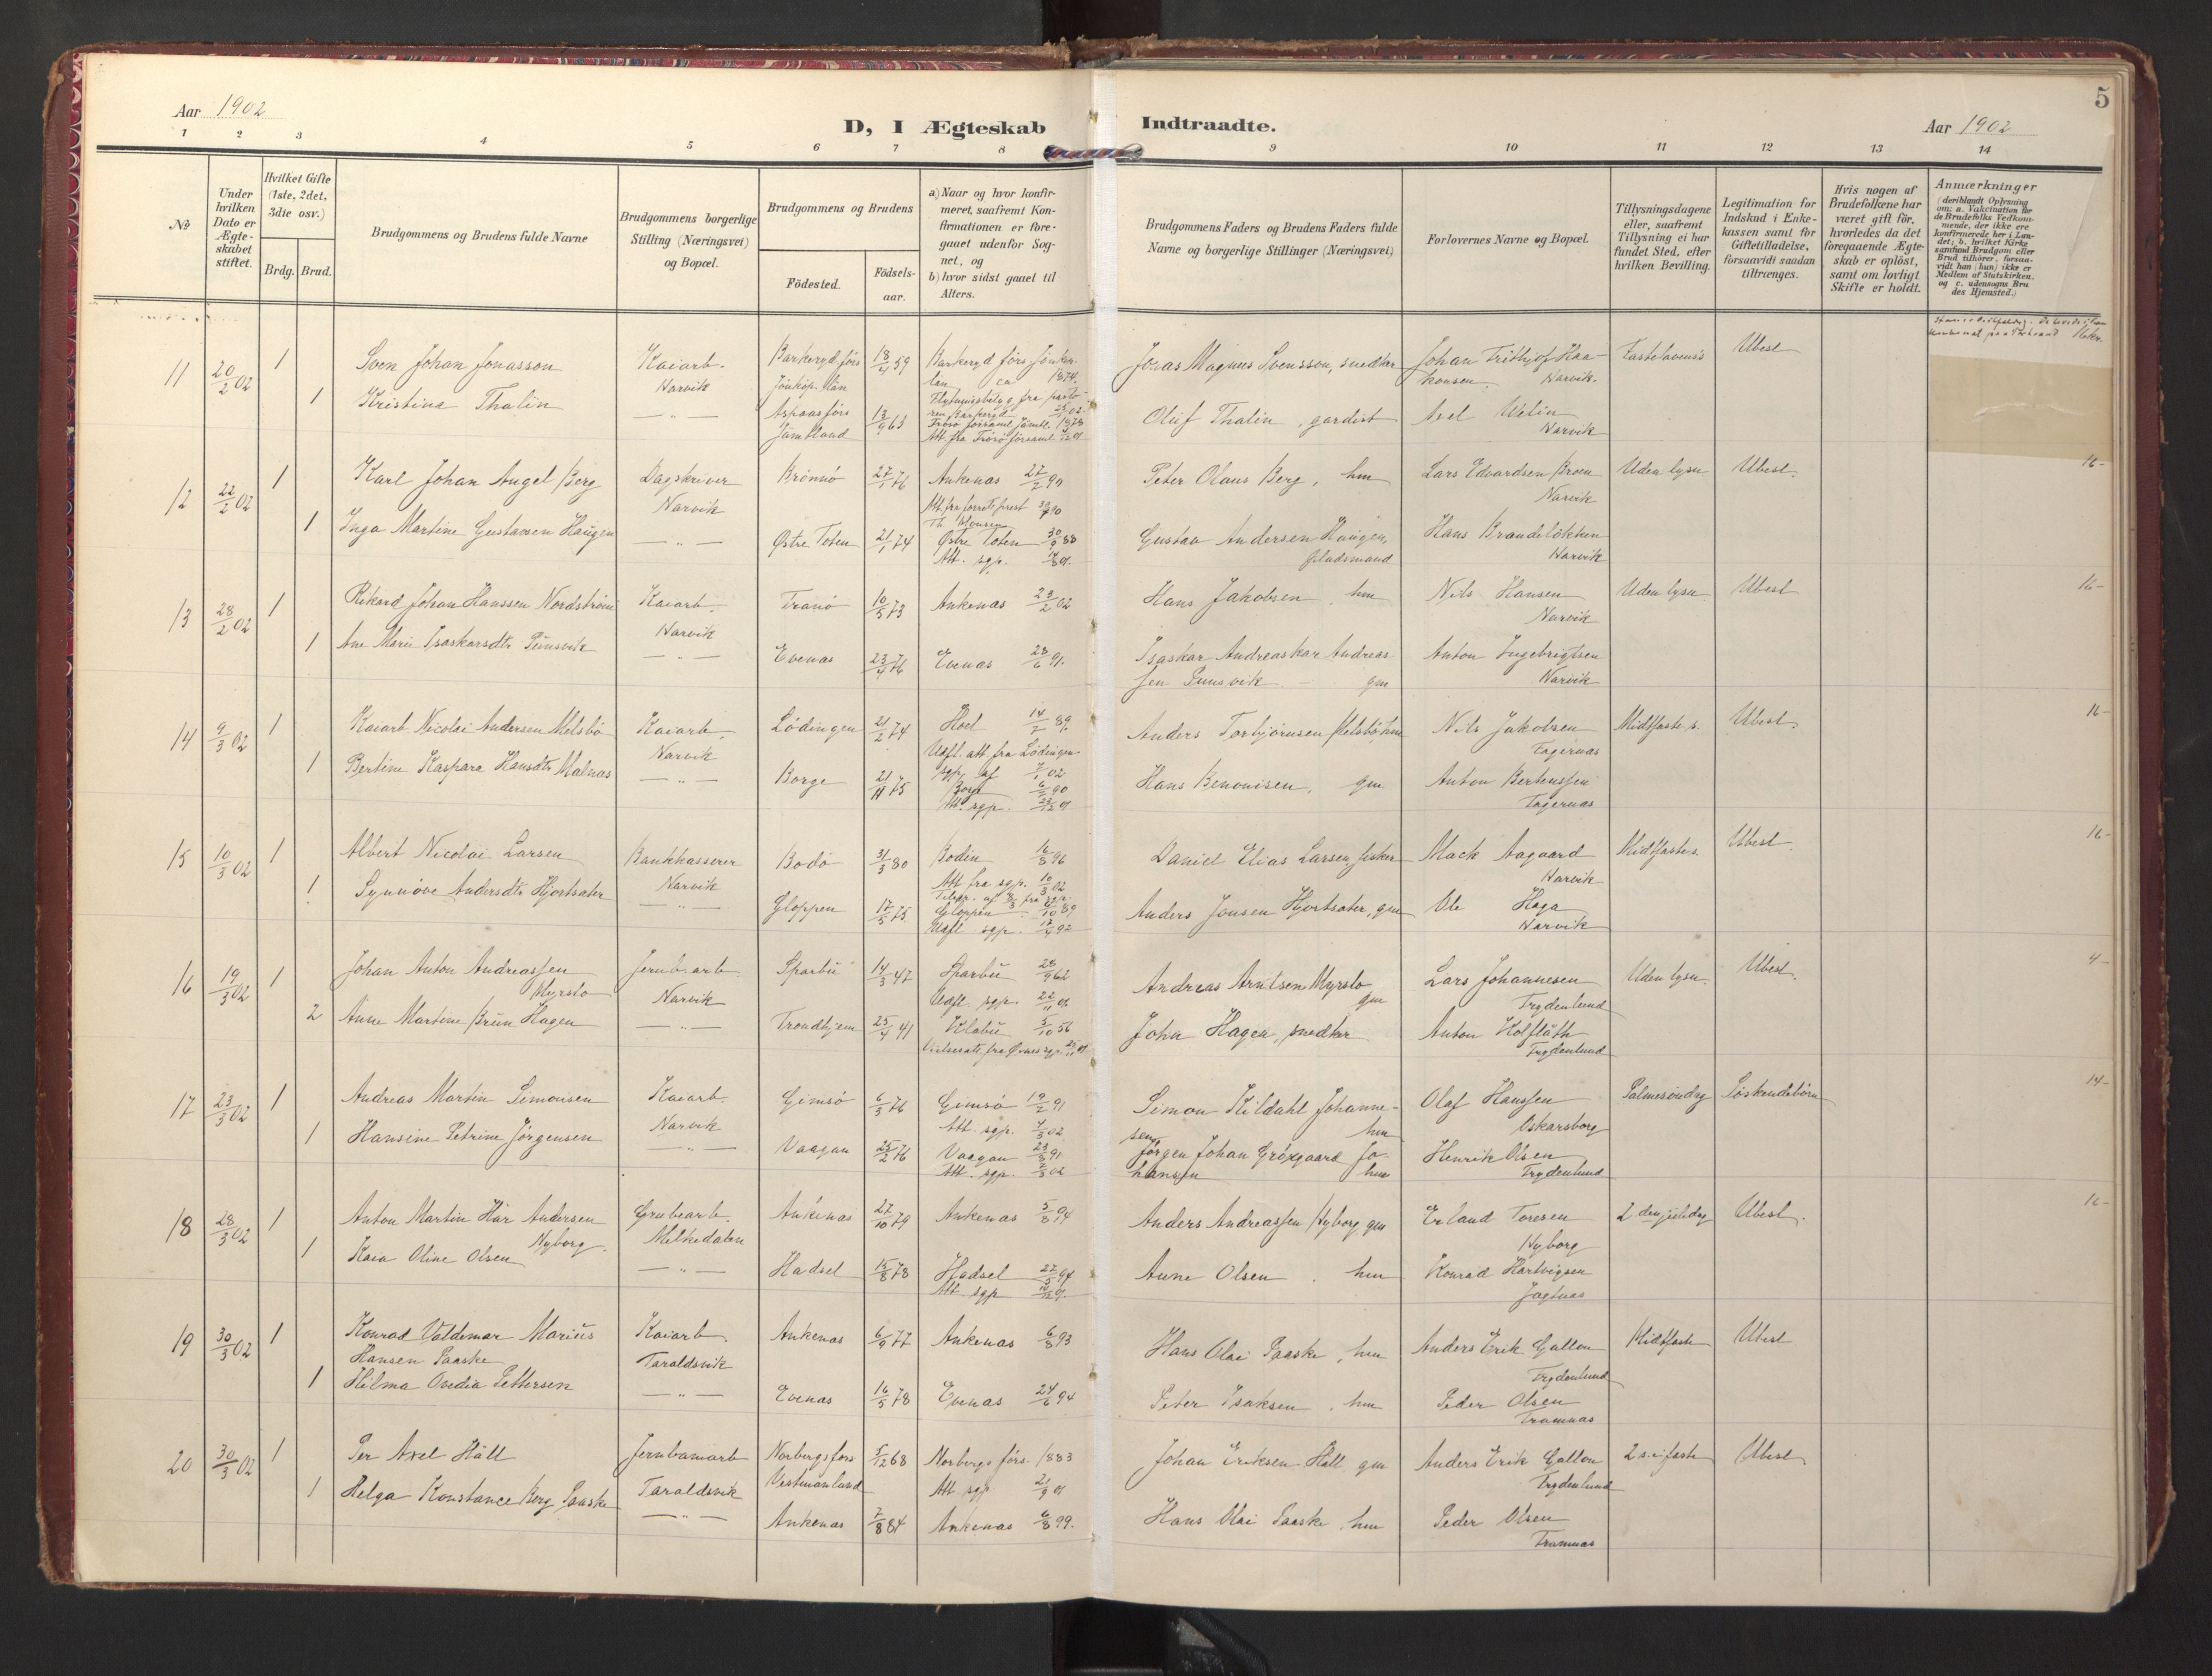 5
Aar 1902
D, I Ægteskab Indtraadte.
Aar 1902
1 2 3 4 5 6 7 8 9 10 11 12 13 14
№
Under hvilken Dato er Ægte-skabet stiftet.
Hvilket Gifte (1ste, 2det, 3die osv.)
Brdg. Brud.
Brudgommens og Brudens fulde Navne
Brudgommens borgerlige Stilling (Næringsvei) og Bopæl.
Brudgommens og Brudens
Födested.
Födsels-aar.
a) Naar og hvor konfir-meret, saafremt Kon-firmationen er fore-gaaet udenfor Sog-net, og
b) hvor sidst gaaet til Alters.
Brudgommens Faders og Brudens Faders fulde Navne og borgerlige Stillinger (Næringsvei)
Forlovernes Navne og Bopæl.
Tillysningsdagene eller, saafremt Tillysning ei har fundet Sted, efter hvilken Bevilling.
Legitimation for Indskud i Enke-kassen samt for Giftetilladelse, forsaavidt saadan tiltrænges.
Hvis nogen af Brudefolkene har været gift för, hvorledes da det foregaaende Ægte-skab er oplöst, samt om lovligt Skifte er holdt.
Anmærkninger (deriblandt Oplysning om: a. Vakcination for de Brudefolks Vedkom-mende, der ikke ere konfirmerede her i Lan-det; b. hvilket Kirke samfund Brudgom eller Brud tilhörer, forsaa-vidt han (hun) ikke er Medlem af Statskirken, og c. udensogns Bru des Hjemsted.)
11 20/2 02 1 Sven Johan Jonasson Kaiarb. Narvik Barkeryd förs Jönköp. län 18/4 59 Barkeryd förs Jönkö. län ca 1874. Jonas Magnus Svensson, snedker Johan Frithjof Haa-konsen. Narvik. Fastelavenss Ubesl
1 Kristina Thalin — " — Aspaasförs Jämtland 13/9 63 Olüf Thalin, gardist Axel Welin Narvik
12 22/2 02 1 Karl Johan Angel Berg Dagskriver Narvik Brönnö 27/1 76 Ankenas 27/2 90 Peter Olaus Berg, hm Lars Edvardsen Broen Narvik Uden lysn Ubesl. 16-
1 Inga Martine Gustavsen Haugen — " — Østre Toten 21/1 74 Østre Toten 30/9 88 Att. sgp. Gustav Andersen Haugen, pladsmand Hans Brandelökken Narvik
13 28/2 02 1 Rikard Johan Hanssen Nordström Kaiarb. Narvik Tranö 10/5 73 Ankenas 23/2 02 Hans Jakobsen, hm Nils Hansen Narvik Uden lysn Ubesl 16-
1 Ane Marie Isaskarsdtr Punsvik — " — Evenas 23/4 76 Evenas 28/6 91. Isaskar Andreaskar Andreas sen Punsvik — gm Anton Ingebrigtsen Narvik
14 9/3 02 1 Kaiarb Nicolai Andersen Melsbö Kaiarb. Narvik Lödingen 21/2 74 Hol 14/7 89. Uafl. att. fra Lödingen sgp. af 7/1 02 Anders Torbjörnsen Melsbö hm Nils Jakobsen Fagernas Midtfaste s. Ubesl. 16-
1 Bertine Kaspara Hansdtr Malnas — " — Borge 21/11 75 Borge 6/7 90 Att. sgp. Hans Benonisen, gm Anton Berteussen Fagernas
15 10/3 02 1 Albert Nicolai Larsen Bankkasserer Narvik Bodö 31/3 80 Bodin 16/8 96 Att fra sgp. 10/3 02 Daniel Elias Larsen, fisker Mack Aagaard Narvik Midtfaste s. Ubesl. 16-
1 Synnöve Andersdtr Hjortsæter — " — Gloppen 17/5 75 Gloppen 6/10 89 Uafl. sgp. Anders Jonsen Hjortsæter, gm Ole Haga Narvik
16 19/3 02 1 Johan Anton Andreassen Myrslo Jernb.arb. Narvik Sparbü 14/3 47 Sparbü 28/9 62 Uafl. sgp. 22/11 01. Andreas Arntsen Myrslo gm Lars Johannesen Frydenlund Uden lysn. Ubesl. 4-
2 Anne Martine Brün Hagen — " — Trondhjem 25/4 41 Klæbü 5/10 56 John Hagen, snedker Anton Hofslüth Frydenlund
17 23/3 02 1 Andreas Martin Simonsen Kaiarb. Narvik Gimsö 6/3 76 Gimsö 19/2 91 Att. sgp. 7/3 02 Simon Kildahl Johanne-sen hm Olaf Hanssen Oskarsborg Palmesöndag Söskendebörn 14-
1 Hansine Petrine Jörgensen — " — Vaagan 25/2 76 Vaagan Att. sgp. Jörgen Johan Grözgaard Jo-hansen hm Henrik Olsen Frydenlund
18 28/3 02 1 Anton Martin Här Andersen Nyborg. Grubearb. Melkedalen Ankenas 27/10 79 Ankenas 5/8 94 Anders Andreassen Nyborg gm Erland Toresen Nyborg 2. den juledag Ubesl. 16-
1 Kaia Oline Olsen — " — Hadsel 15/8 78 Hadsel Att sgp Anne Olsen, hm Konrad Hartvigsen Jagtnas
19 30/3 02 1 Konrad Valdemar Marius Hansen Paaske Kaiarb. Taraldsvik Ankenas 6/9 77 Ankenas 6/8 93 Hans Olai Paaske, hm Anders Erik Gallon Frydenlund Midtfaste Ubesl
1 Hilma Ovedia Pettersen — " — Evenas 16/5 78 Evenas 24/6 94 Peter Isaksen, hm Peder Olsen Framnas
20 30/3 02 1 Per Axel Häll Jernbanearb Taraldsvik Norbergsfors Vestmanland 5/12 68 Norbergs förs. 1883 Att sgp. 21/9 01 Johan Eriksen Häll gm Anders Erik Gallon Frydenlund 2 s. i faste Ubesl.
1 Helga Konstance Berg Paaske — " — Ankenas 7/8 84 Ankenas 6/8 99. Hans Olai Paaske, hm Peder Olsen Framnas